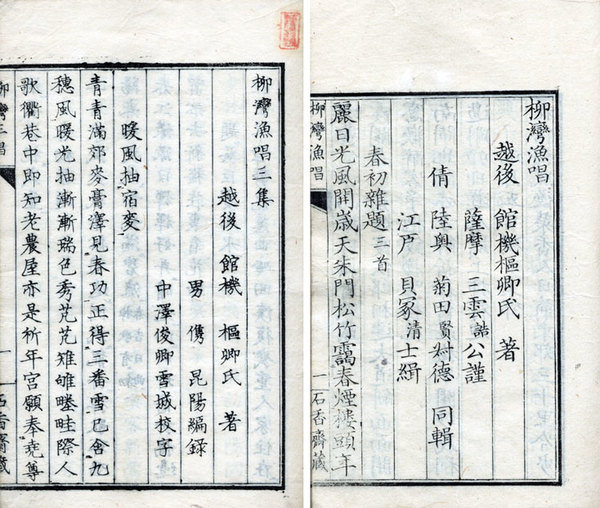 柳灣漁唱
越後 館機樞卿氏 著
薩摩 三雲誥公謹
倩 陸奥 菊田賢尌德 同輯
江戸 貝冢清士緝
春初雜題 三首
麗日光風開歳天朱門松竹靄春煙樓頭年
柳灣漁唱 一 石香齋藏
柳灣漁唱三集
越後 館機 樞卿氏 著
男 儁 昆陽編録
中澤俊卿雪城校字
暖風抽宿麥
青青滿郊麥膏澤見春功正得三番雪已含九
穗風暖光抽漸漸瑞色秀芃芃雉雊畦際人
歌衢巷中即知老農屋亦是祈年宮願奉堯尊
柳灣三唱 一 石香齋藏